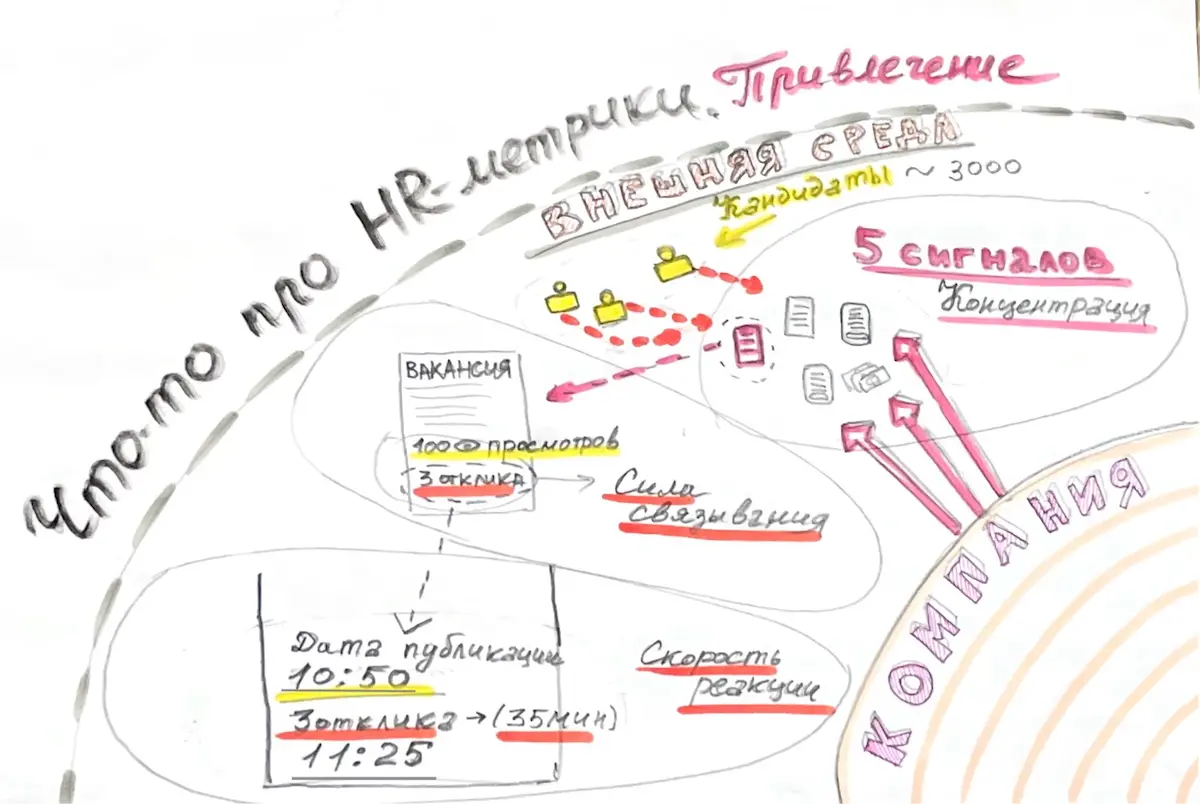 Что-то про HR-метрики. Привлечение
ВНЕШНЯЯ СРЕДА
Кандидаты ~ 3000
5 сигналов
Концентрация
ВАКАНСИЯ
100 просмотров
3 отклика
Сила
связывания
КОМПАНИЯ
Дата публикации
10:50
3 отклика → (35 мин)
11:25
Скорость
реакции